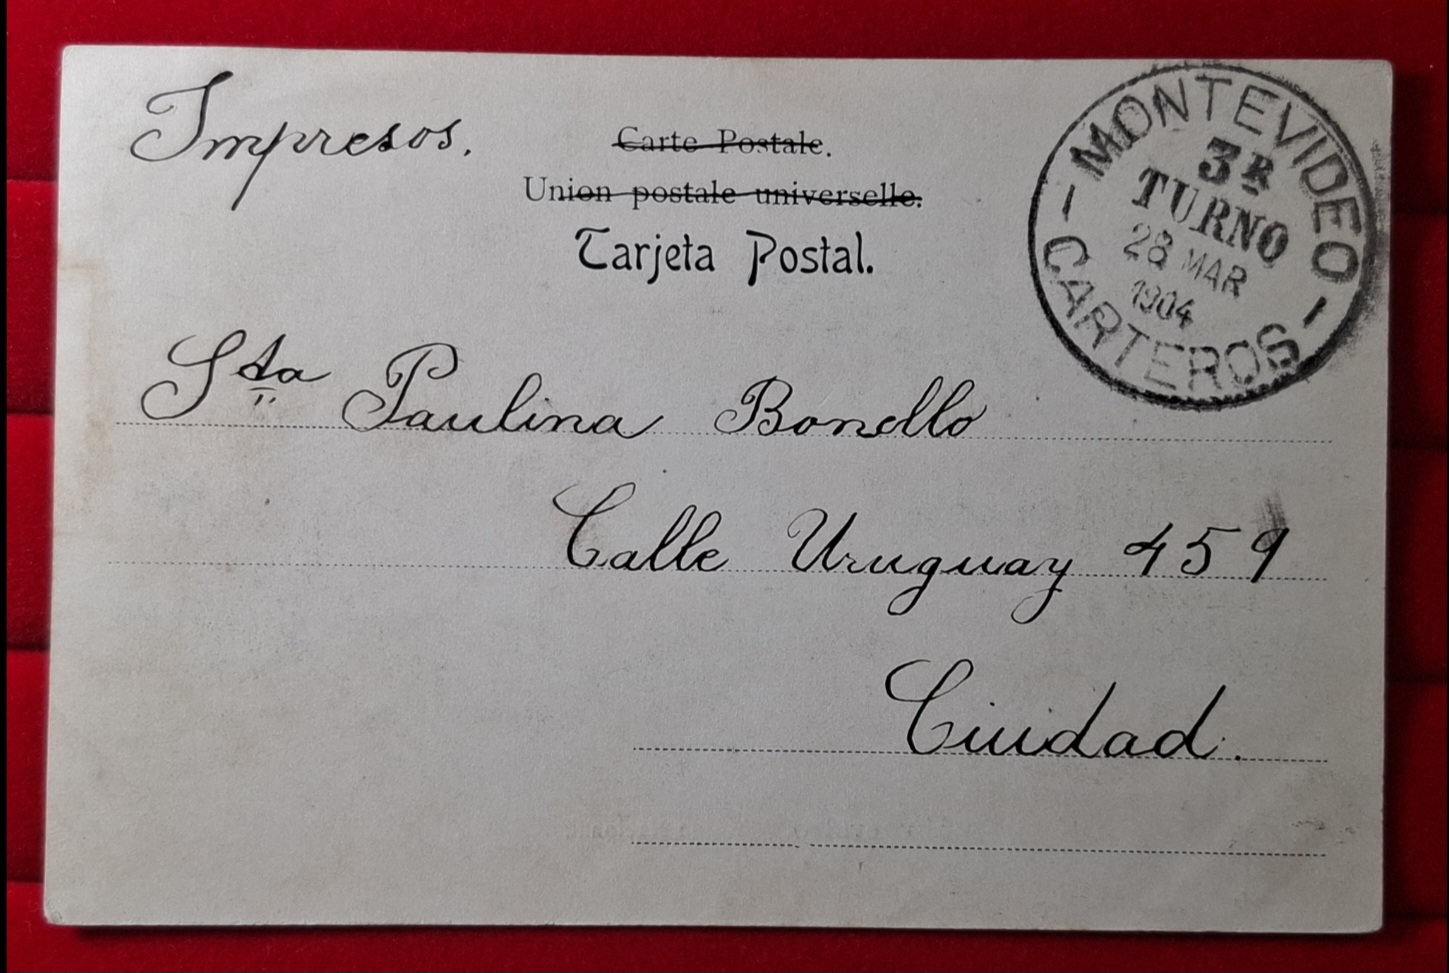 Impresos.
Carte Postale.
Union postale universelle.
Tarjeta Postal.
MONTEVIDEO
3R
TURNO
28 MAR
1904
CARTEROS
Sta Paulina Bonello
Calle Uruguay 459
Ciudad.